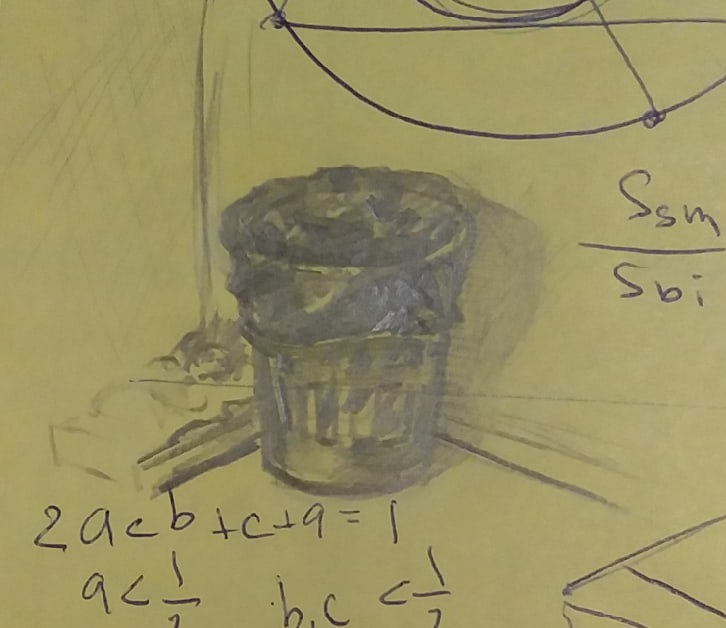 S sm
S bi
2a<b+c+a=1
a<1/2 b,c <1/2